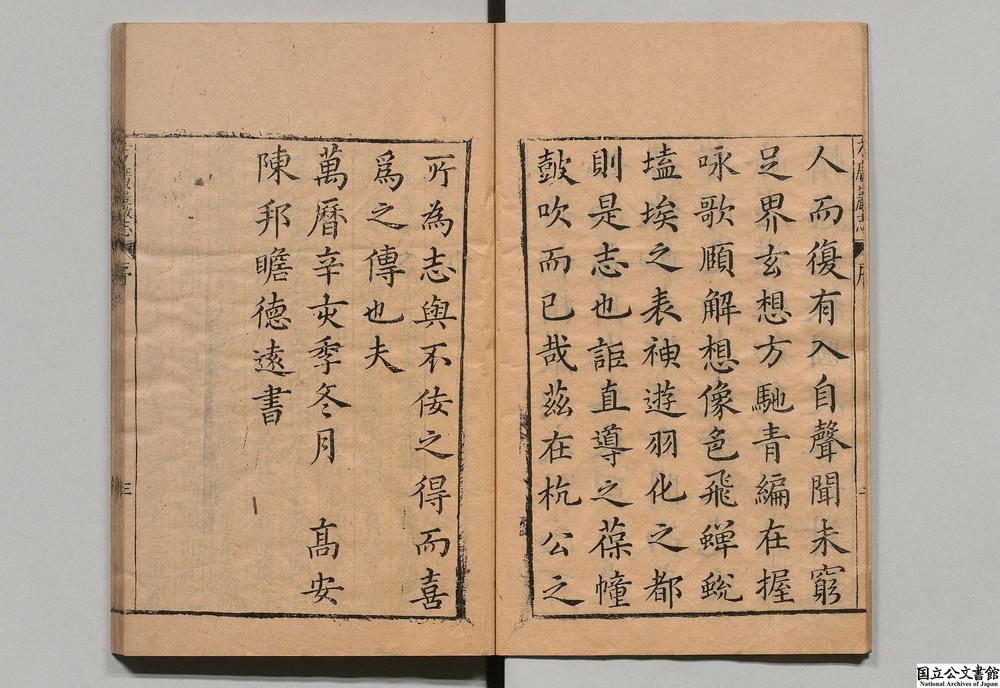 人而復有入自聲聞未窮
足界玄想方馳青編在握
咏歌頤解想像色飛蟬蛻
壒埃之表神遊羽化之都
則是志也詎直導之葆幢
鼓吹而已哉茲在杭公之
所為志與不佞之得而喜
爲之傳也夫
萬曆辛亥季冬月 高安
陳邦瞻德遠書
序
三
国立公文書館
National Archives of Japan